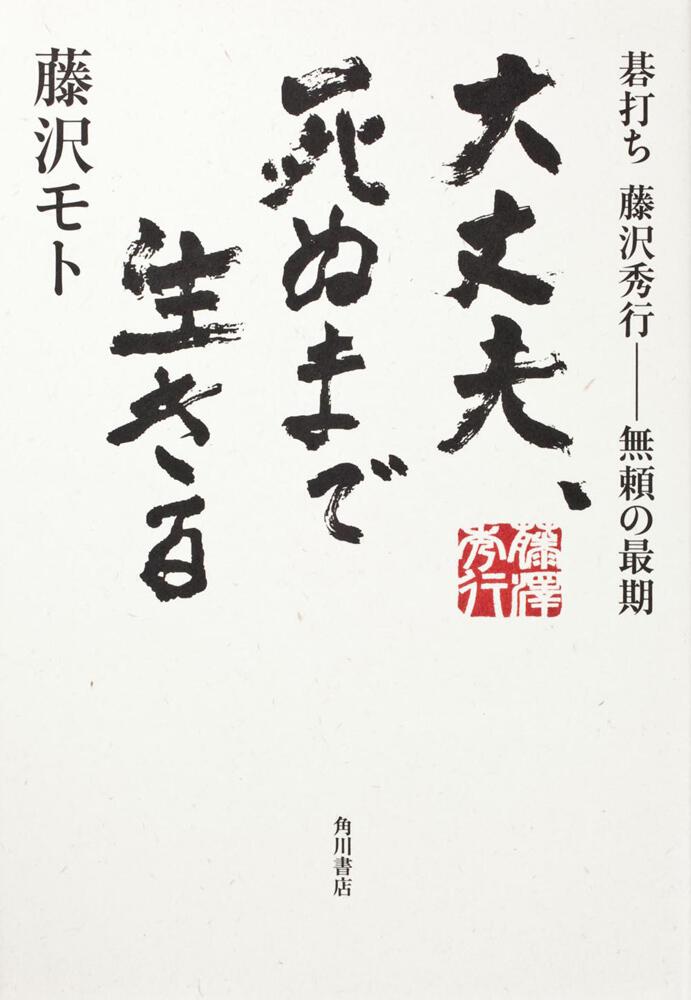 碁打ち 藤沢秀行――無頼の最期
大丈夫、
死ぬまで
生きる
藤澤
秀行
藤沢モト
角川書店